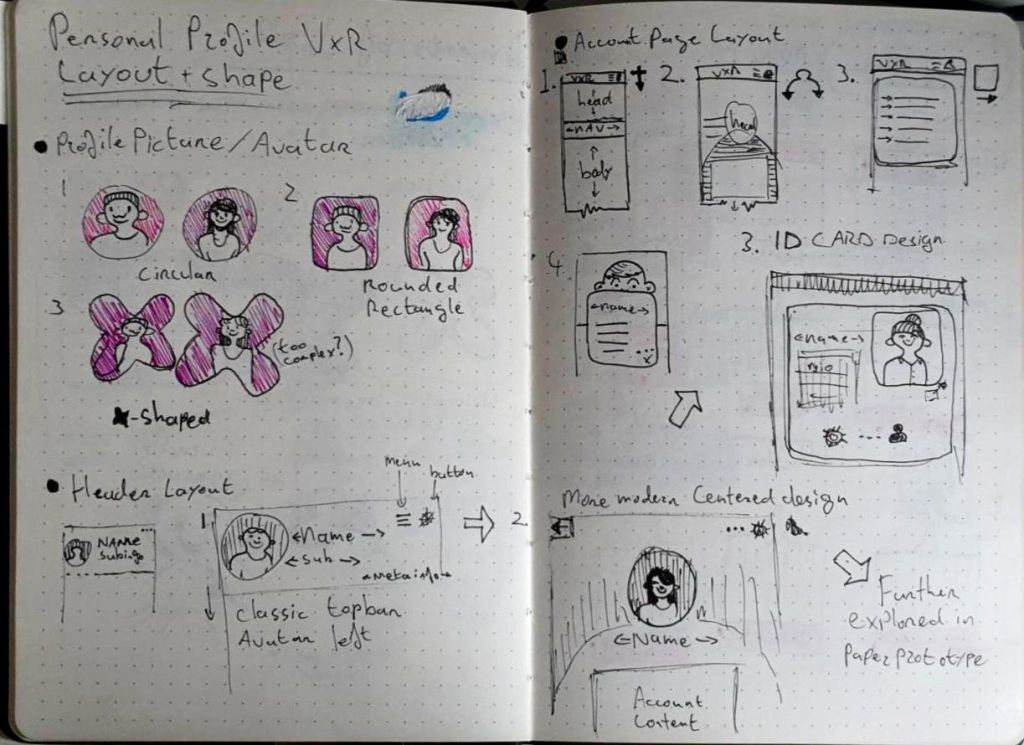 Personal Profile VxR
Layout + shape
Profile Picture / Avatar
1
2
Circular
Rounded
Rectangle
3
(too
complex?)
-shaped
Header Layout
menu
button
NAME
subinfo
1.
<-Name->
<-sub->
<-Metainfo->
Classic topbar
Avatar left
Account Page Layout
1.
VxR
head
<-NAV->
body
2.
VxR
head
3.
VxR
4.
<-name->
3. ID CARD Design
<-name->
Bio
More modern Centered design
2.
<-Name->
Account
Content
Further
explored in
paper prototype